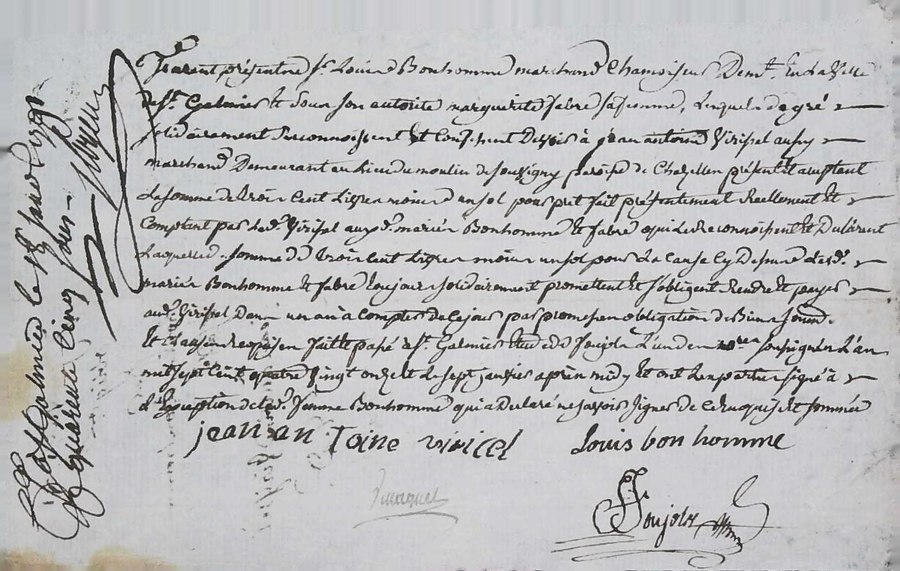 furent présents Sr. Louis Bonhomme marchand Chamoiseur Demt. En La Ville
de St. Galmier Et Sous son autorité marguerite fabre sa femme, Lesquels de gré
solidairement Reconnoissent Et Confessent Devoir à jean antoine Viricel aussy
marchand Demeurant au Lieu du moulin de Souvigny paroisse de Chazelles présent Et acceptant
La somme de trois Cent Livres moins un sol pour prêt fait présentement Reellement Et
Comptant par Led. Viricel auxd. mariés Bonhomme Et fabre qui Le Reconnoissent Et Déclarent
Laquelle d. somme de trois Cent Livres moins un sol pour La Cause Cy Dessus Lesd.
mariés Bonhomme Et fabre toujours solidairement promettent Et s'obligent Rendre Et payer
aud. Viricel Dans un an à Compter de Ce jour par promesse obligation de Biens soumd.
Et Clauses Requises fait Et passé à St. Galmier Etude de Soujols L'un des soussignés L'an
mil sept Cent quatre Vingt onze Et Le sept janvier après midy Et ont Les parties signé à
L'Exception de Lad. femme Bonhomme qui a Déclaré ne savoir signer de Ce Requise Et sommée
jean an toine viricel Louis bon homme
Soujols
à St. Galmier le janvier 1791
quarante Cinq sols